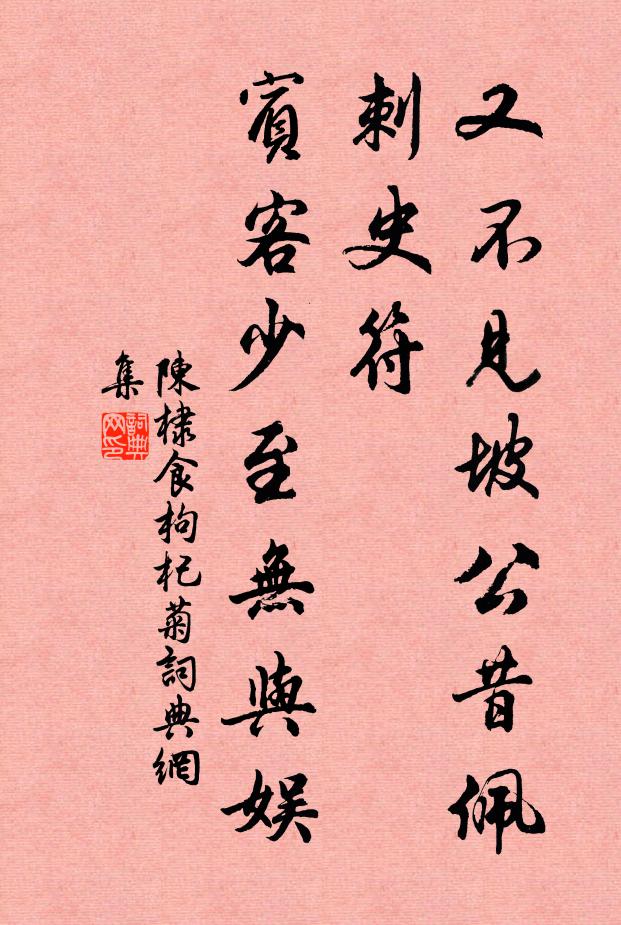 又不見坡公昔佩
刺史符
賓客少至無與娱
陳棣食枸杞菊詞典網
集
詞典
网印